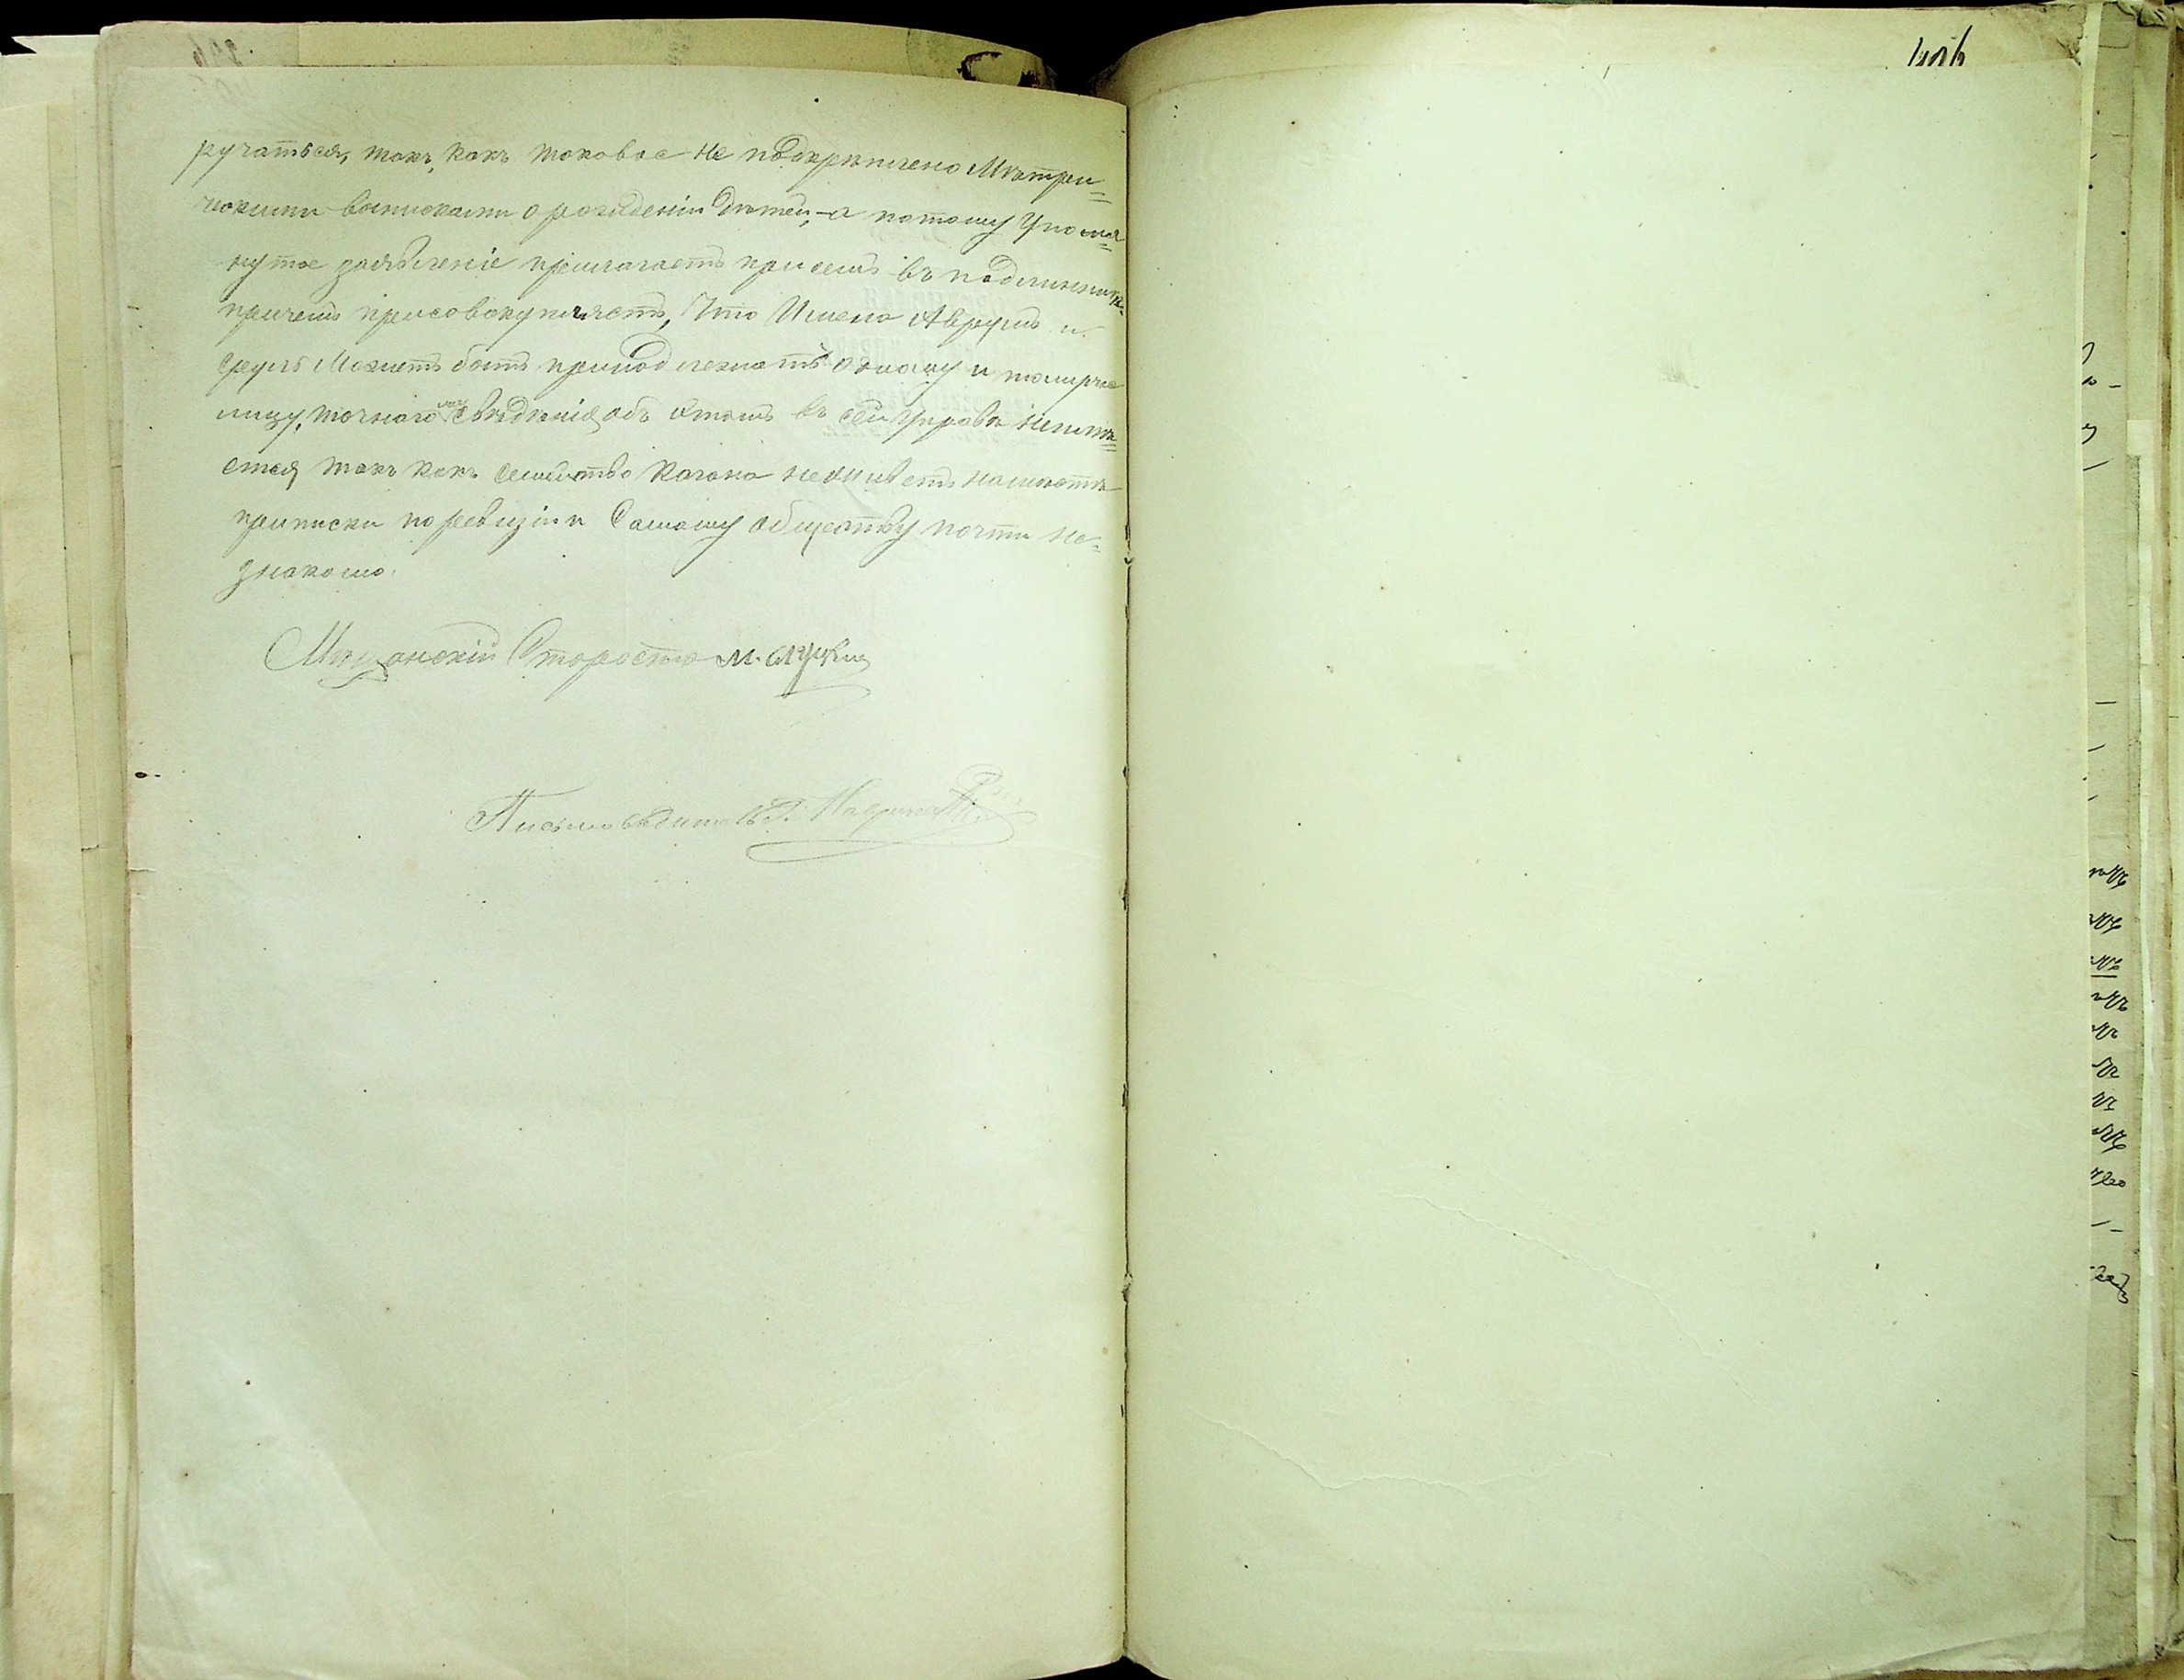 ручаться, такъ, какъ таковое не подкрѣплено Мѣтри=
ческими выписками о рожденіи дѣтей,-а потому Упомя=
нутое заявленіе прилагаетъ при семъ въ подлинникѣ.
причемъ присовокупляетъ, Что Имена Аврумъ и
Сруль Можетъ быть принадлежатъ одному и тому же
лицу, точнаго свѣдѣнія объ этомъ въ сей Управѣ неимѣ=
ется такъ какъ семейство Кагана неживетъ на мѣстѣ
приписки по ревизіи и самому обществу почти не=
знакомо.
Мѣщанскій Староста М.
Письмоводитель
406